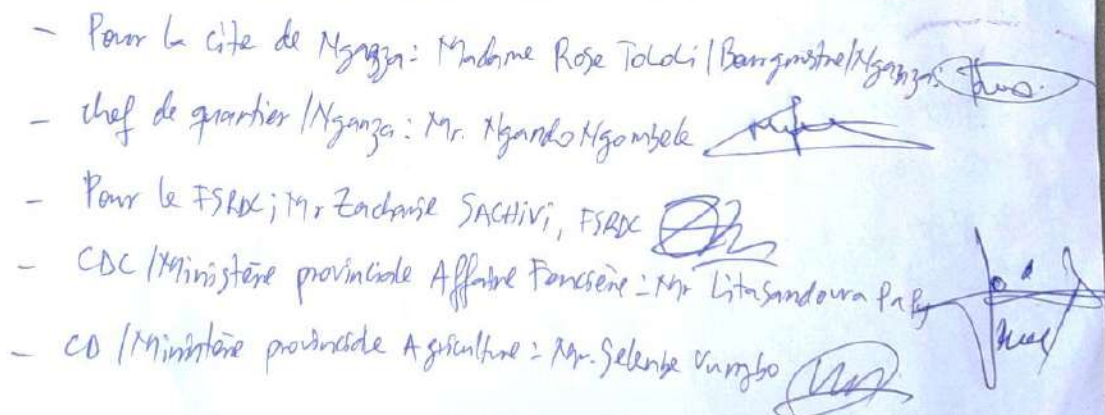 - Pour la cite de Nganza: Madame Rose Tololi/Bourgmestre/Nganza:
- chef de quartier/Nganza: Mr. Ngando Ngombele
- Pour le FSRDC; Mr Zacharie SACHIVI, FSRDC
- CDC/Ministère provinciale Affaire Foncière: Mr Litasandoura Papy
- CD/Ministère provinciale Agriculture: Mr. Selenbe Vungbo